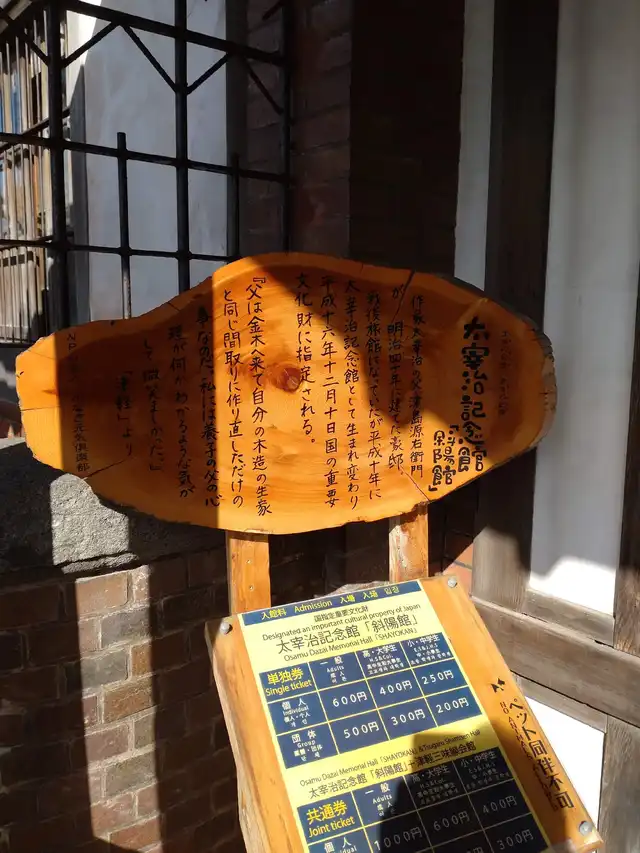 太宰治記念館
「斜陽館」
作家太宰治の父津島源右衛門
が明治四十年に建てた豪邸、
戦後旅館になっていたが平成十年に
太宰治記念館として生まれ変わり
平成十六年十二月十日国の重要
文化財に指定される。
『父は金木へ来て自分の木造の生家
と同じ間取りに作り直しただけの
事なのだ。私には養子の父の心
理が何かわかるような気が
して微笑ましかった。』
「津軽」より
入館料 Admission 入場 입장
国指定重要文化財
Designated an important cultural property of Japan
太宰治記念館「斜陽館」
Osamu Dazai Memorial Hall「SHAYOKAN」
単独券
Single ticket
一般
Adults
高・大学生
H.S.& Col.
小・中学生
個人
Individual
個人・个人
개인
600円
400円
250円
団体
Group
단체
500円
300円
200円
Osamu Dazai Memorial Hall「SHAYOKAN」&Tsugaru Shamisen Hall
太宰治記念館「斜陽館」+津軽三味線会館
共通券
Joint ticket
一般
Adults
高・大学生
小・中学生
個人
Individual
1000円
600円
400円
500円
300円
ペット同伴不可